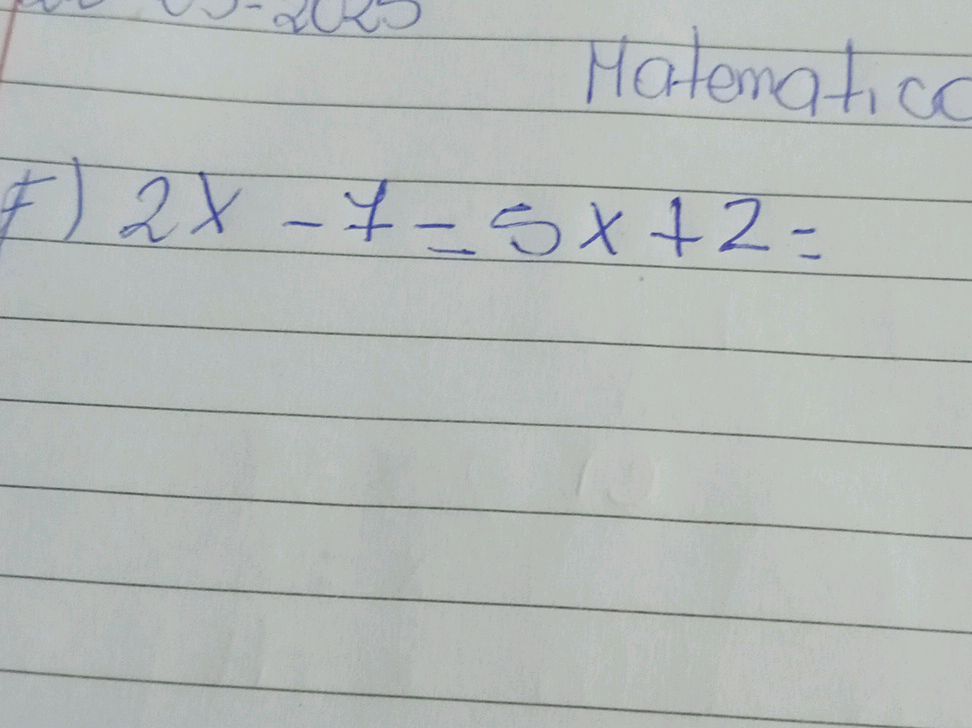 -2025
Matematica
F) 2x - 7 = 5x + 2 =